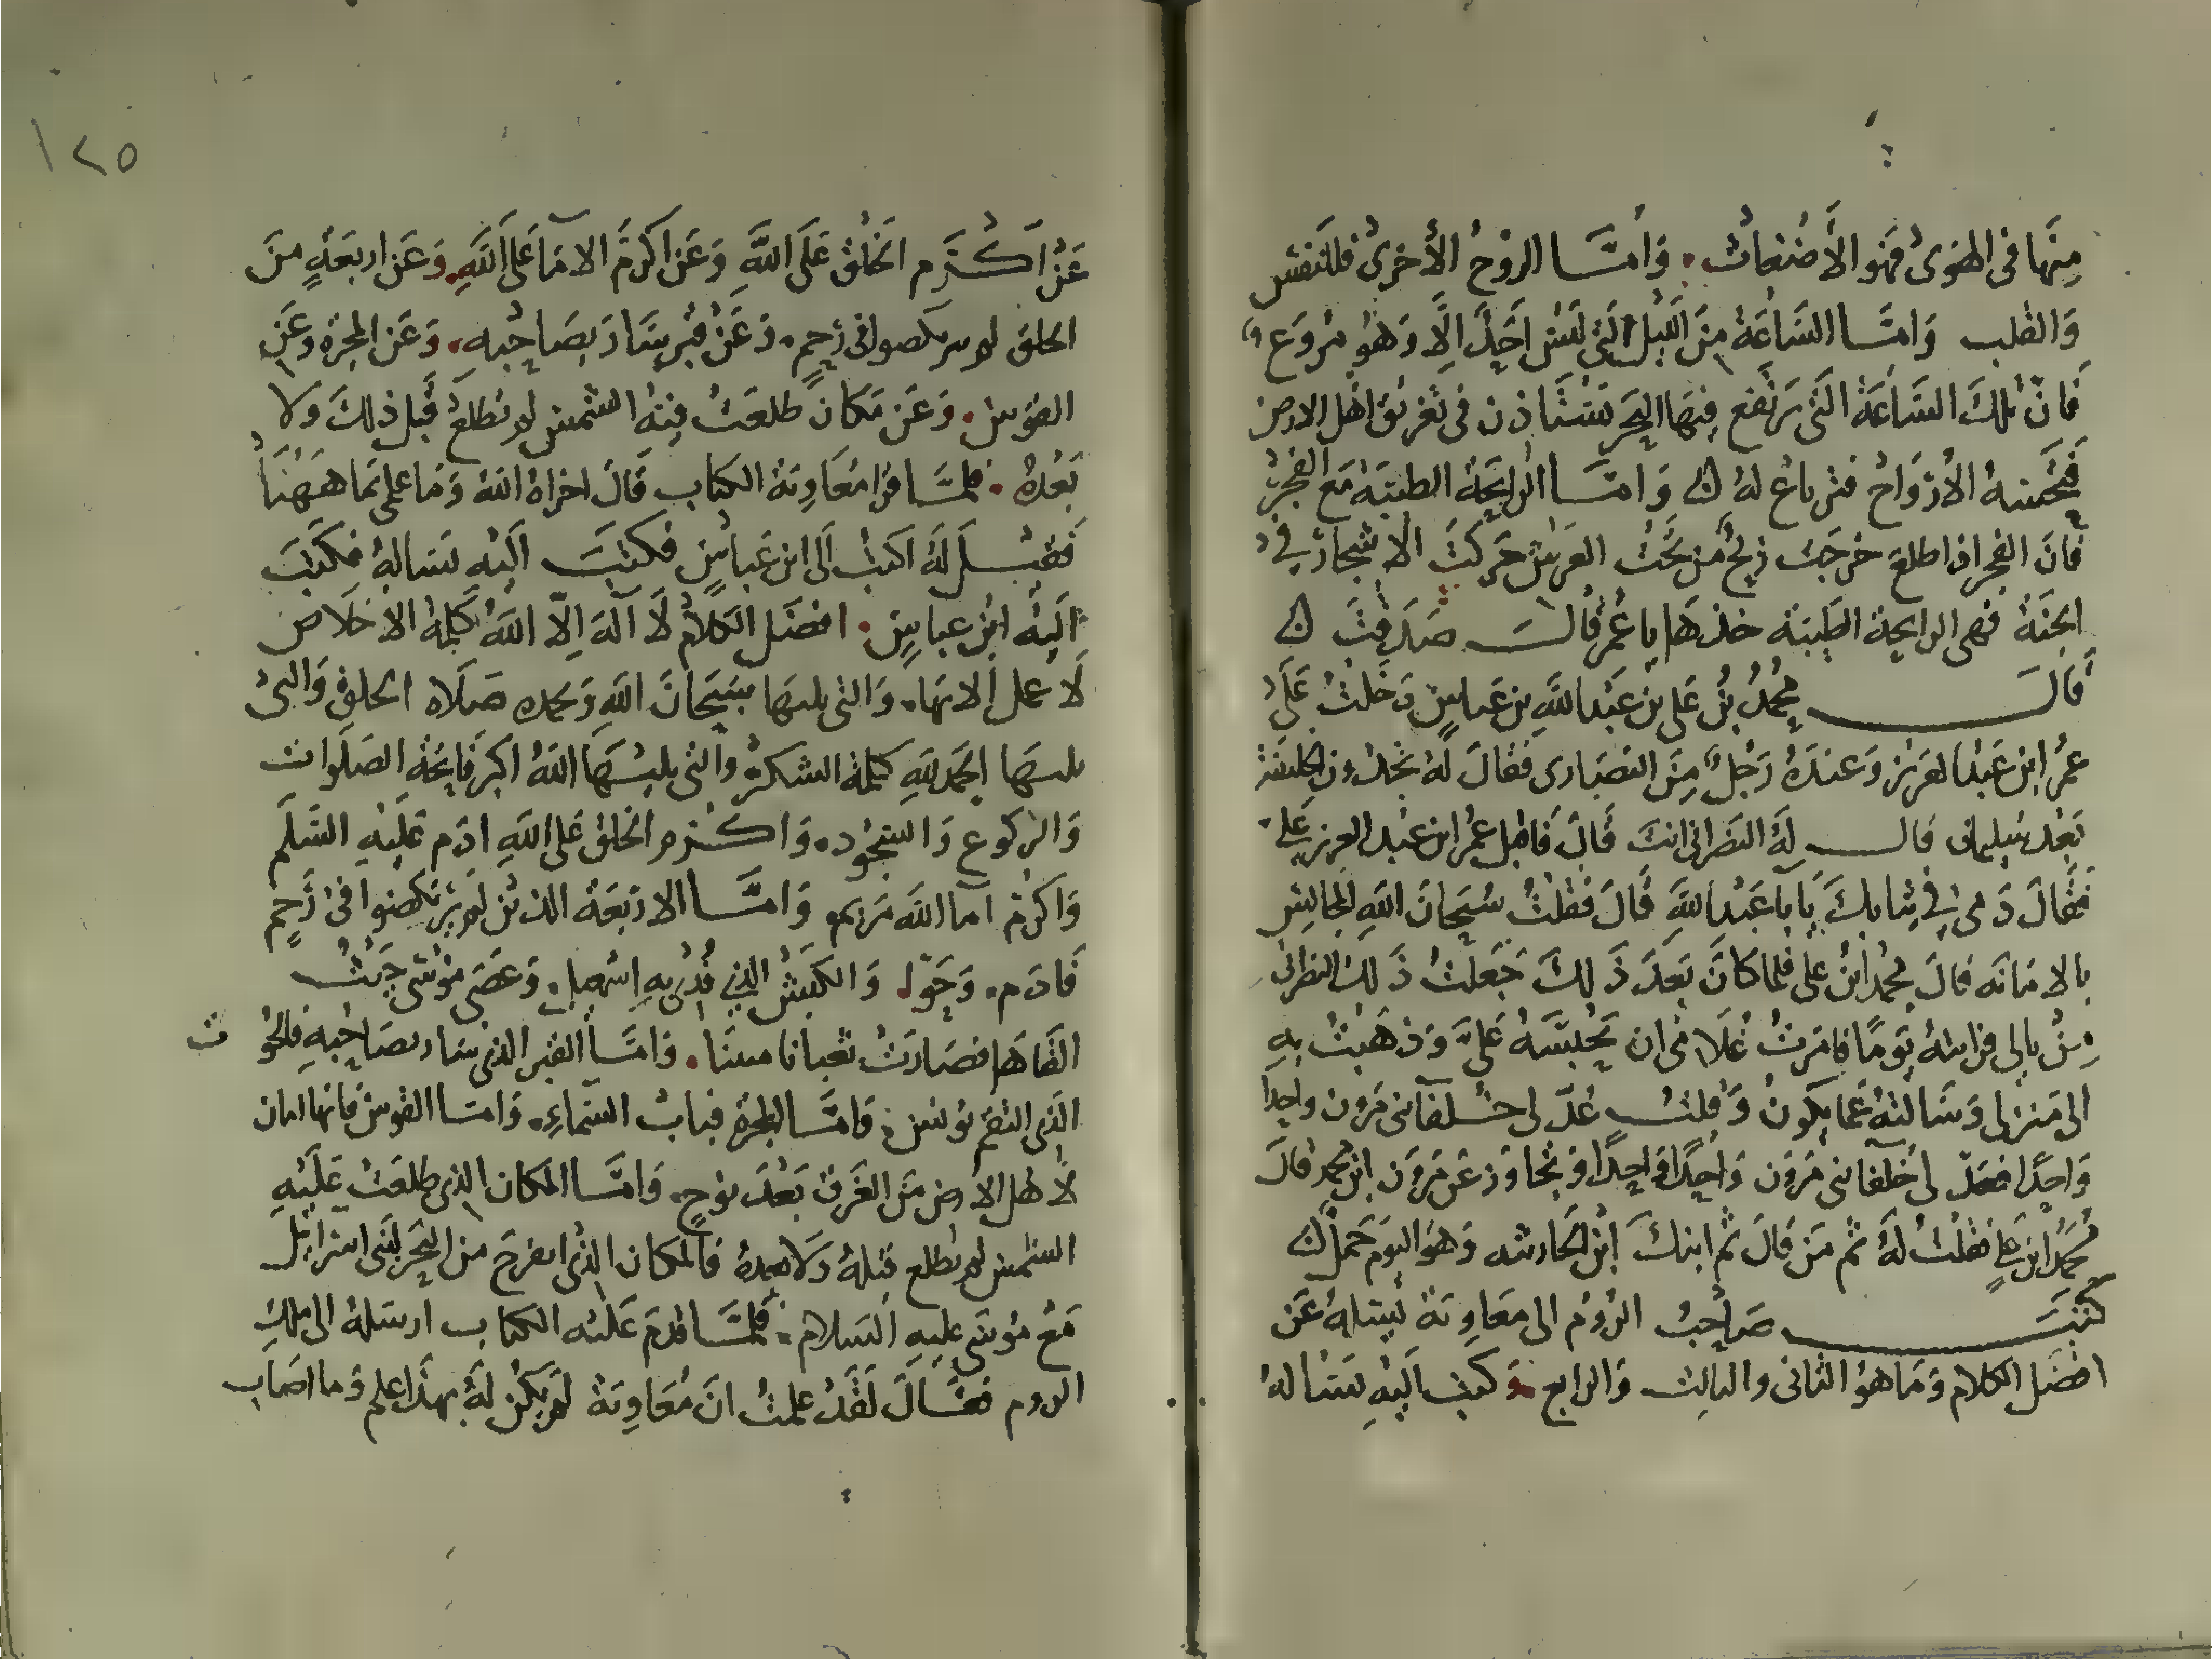 منها في الهوى فهو الاضغاث. وامّا الروح الاخرى فللنفس
والقلب وامّا الساعة من الليل التي ليس احد الا وهو مروع
فان تلك الساعة التي يرتفع فيها البحر يستاذن في تغريق اهل الارض
الارواح له وامّا الرايحة الطيبة مع الفجر
فان الفجر اذا طلع خرجت ريح من تحت العرش حركت الاشجار في
الجنة فهي الرايحة الطيبة خذها يا عمر قال صدقت
قال محمد بن علي بن عبد الله بن عباس دخلت على
عمر ابن عبد العزيز وعنده رجل من النصارى فقال له تجدون الخليفة
بعد سليمان قال له النصراني انت قال فاقبل عمر ابن عبد العزيز علي
فقال دمي في ثيابك يا با عبد الله قال فقلت سبحان الله المجالس
بالامانه قال محمد ابن علي فلما كان بعد ذلك جعلت ذلك النصراني
من بالي فرايته يوما فامرت غلامي ان يحبسه علي وذهبت به
الى منزلي وسالته عما يكون وقلت عدّ لي خلفا بني مرون واحدا
واحدا فعدّ لي خلفا بني مرون واحدا واحدا وتجاوز عن مرون ابن محمد قال
محمد ابن علي فقلت له ثم من قال ثم ابنك ابن الحارثيه وهو اليوم حمل
كتب صاحب الروم الى معاوية يسله عن
افضل الكلام وما هو الثاني والثالث والرابع وكتب اليه يساله
١٢٥
عن اكرم الخلق على الله وعن اكرم الاما على الله وعن اربعة من
الخلق لم يركضوا في رحم. وعن قبر سار بصاحبه. وعن المجرة وعن
القوس. وعن مكان طلعت فيه الشمس لم تطلع قبل ذلك ولا
بعده. فلمّا قرا معاوية الكتاب قال اخزاه الله وما علمي بما ههنا
فقيل له اكتب الى ابن عباس فكتب اليه يساله فكتب
اليه ابن عباس. افضل الكلام لا اله الا الله كلمة الاخلاص
لا عمل الا بها. والتي يليها سبحان الله وبحمده صلاة الخلق والتي
يليها الحمد لله كلمة الشكر والتي يليها الله اكبر فاتحة الصلوات
والركوع والسجود. واكرم الخلق على الله ادم عليه السلم
واكرم اما الله مريم وامّا الاربعة الذين لم يركضوا في رحم
فادم. وحوا والكبش الذي فدي به اسمعيل. وعصى موسى حيث
القاها فصارت ثعبانا مبينا. وامّا القبر الذي سار بصاحبه فالحوت
الذي التقم يونس. وامّا المجرة فباب السماء. وامّا القوس فانها امان
لاهل الارض من الغرق بعد نوح. وامّا المكان الذي طلعت عليه
الشمس لم تطلع قبله ولا بعده فالمكان الذي انفرج من البحر لبني اسرائيل
مع موسى عليه السلام. فلمّا قدم عليه الكتاب ارسله الى ملك
الروم فقال لقد علمت ان معاوية لم يكن له بهذا علم وما اصاب